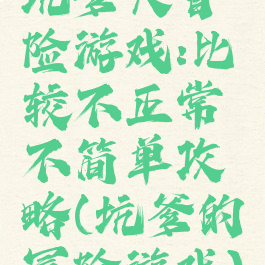 坑爹大冒
险游戏:比
较不正常
不简单攻
略(坑爹的
冒险游戏)